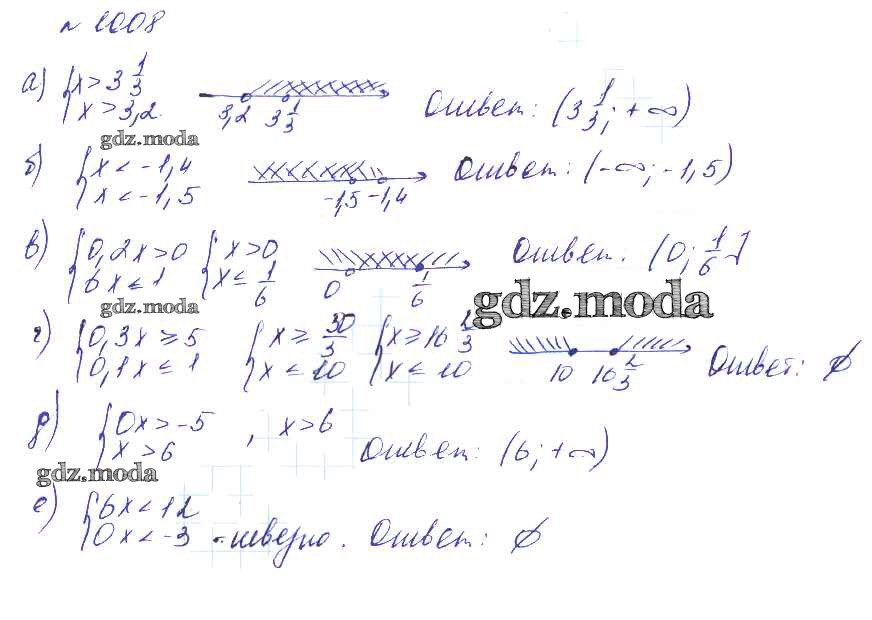 № 1008
а) { x > 3 1/3
x > 3,2. 3,2 3 1/3 Ответ: (3 1/3; +∞)
gdz.moda
б) { x < -1,4
x < -1,5 -1,5 -1,4 Ответ: (-∞; -1,5)
в) { 0,2x > 0 { x > 0
6x ≤ 1 x ≤ 1/6 0 1/6 Ответ. (0; 1/6]
gdz.moda
gdz.moda
г) { 0,3x ≥ 5 { x ≥ 50/3 { x ≥ 16 2/3
0,1x ≤ 1 x ≤ 10 x ≤ 10 10 16 2/3 Ответ: ∅
д) { 0x > -5 , x > 6
x > 6 Ответ: (6; +∞)
gdz.moda
е) { 6x < 12
0x < -3 - неверно. Ответ: ∅